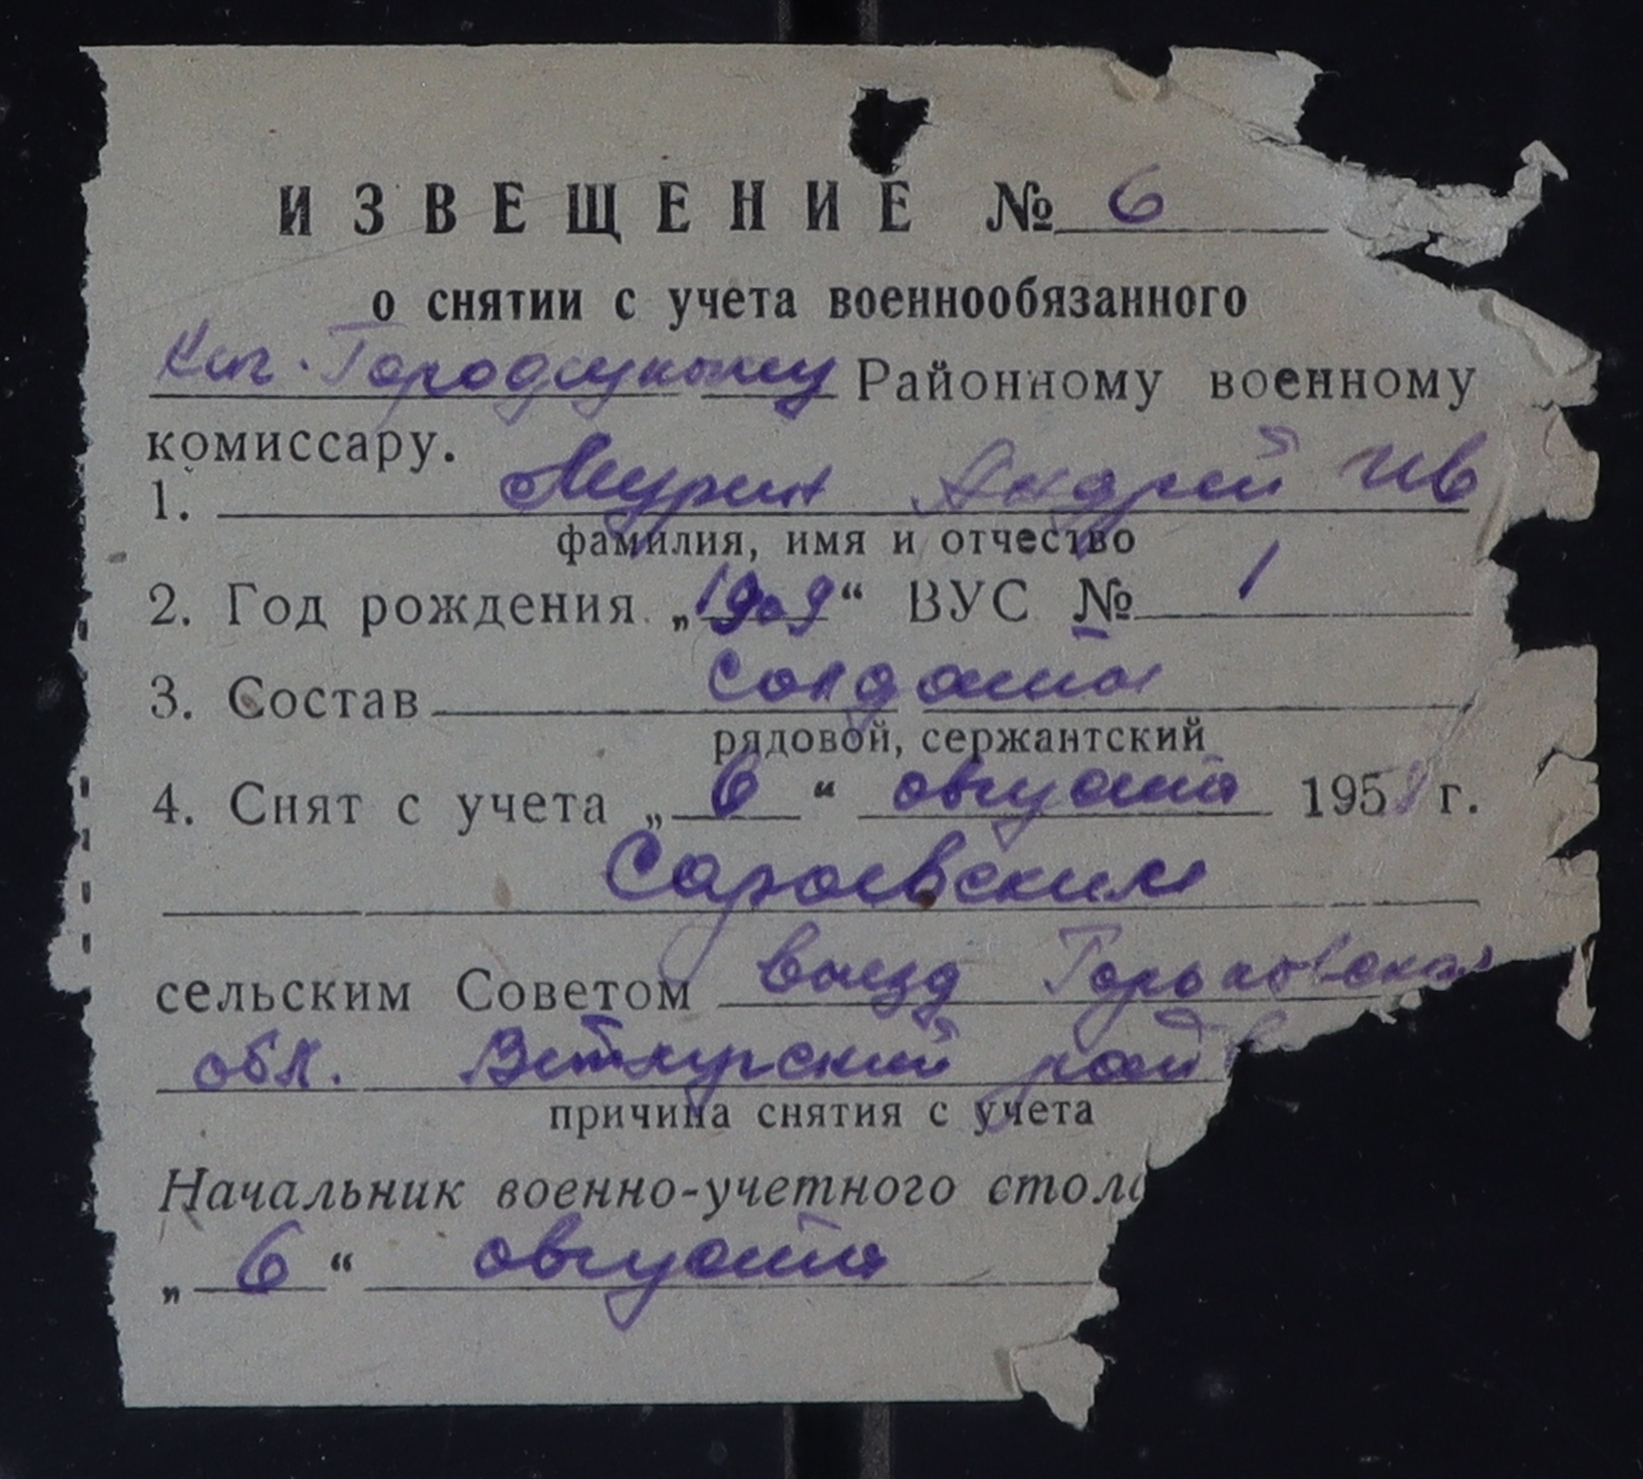 ИЗВЕЩЕНИЕ № 6
о снятии с учета военнообязанного
Кич. Городецкому Районному военному
комиссару.
1. Мурин Андрей Ив
фамилия, имя и отчество
2. Год рождения „1909“ ВУС № 1
3. Состав солдаты
рядовой, сержантский
4. Снят с учета „6“ августа 195 г.
Сараевским
сельским Советом выезд Горьковская
обл. Ветлужский рай
причина снятия с учета
Начальник военно-учетного стола
„6“ августа